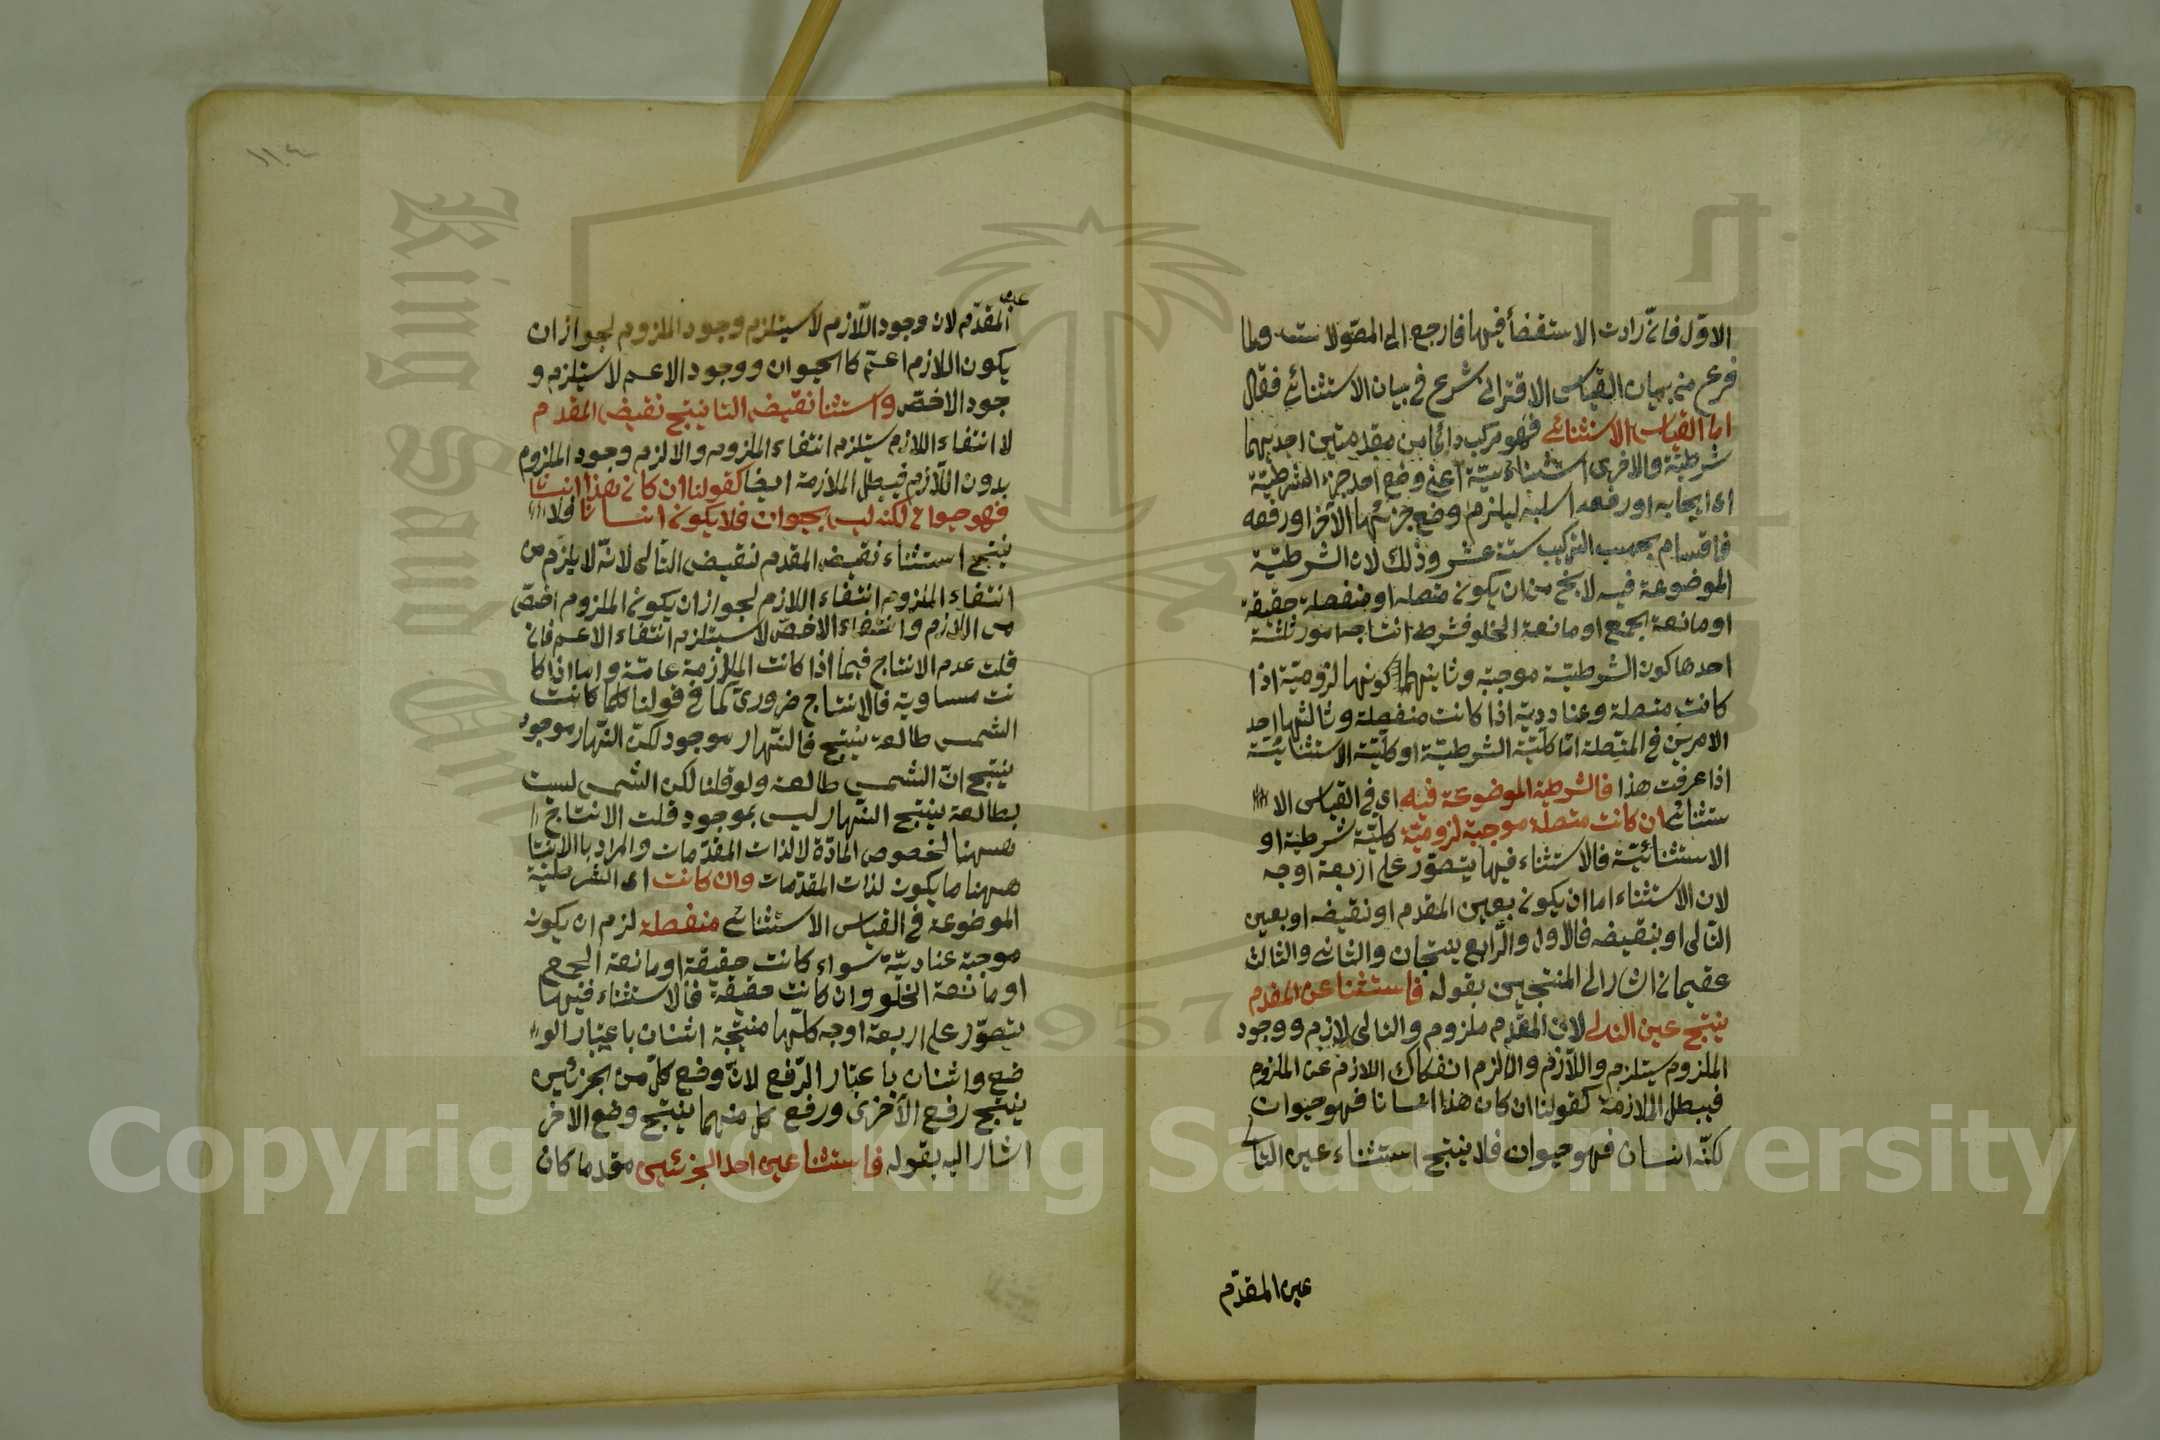 الاوّل فان رادت الاستقضأ فيها فارجع الى المصّولات ولما
فرع من بيان القياس الاقترانى شرع فى بيان الاستثنائى فقال
اما القياس الاستثنائى فهو مركب دائما من مقدمتين احديهما
شرطيّة والاخرى استثنائيّة اعنى وضع احد جزء الشرطيّة
اى ايجابه او رفعه اى سلبه ليلزم وضع جزئها الآخر او رفعه
فاقسام بحسب التركيب ستة عشر وذلك لان الشرطيّة
الموضوعة فيه لا يخ من ان يكون متصله او منفصلة حقيقة
او مانعة الجمع او مانعة الخلو فشرط انتاجه امور ثلثة
احدها كون الشرطيّة موجبة وثانيهما كونها لزوميّة اذا
كانت متصلة وعناديّة اذا كانت منفصلة وثالثها احد
الامرين فى المتّصلة امّا كلّيّة الشرطيّة او كلّيّة الاستثنائيّة
اذا عرفت هذا فالشرطية الموضوعة فيه اى فى القياس الا
ستثنائى ان كانت متصلة موجبة لزوميّة كليّة شرطية او
الاستثنائيّة فالاستثناء فيها يتصوّر على اربعة اوجه
لان الاستثناء اما ان يكون بعين المقدم او نقيضه او بعين
التالى او بنقيضه فالاول والرّابع ينتجان والثانى والثالث
عقيمان اشار الى المنتجين بقوله فاستثنا عين المقدم
ينتج عين التالى لان المقدّم ملزوم والتالى لازم ووجود
الملزوم يستلزم واللّازم والّالزم انفكاك اللازم عن الملزوم
فيبطل الملازمة كقولنا ان كان هذا انسانا فهو حيوان
لكنّه انسان فهو حيوان فلا ينتج استثناء عين التالى
عين المقدّم
١١٠٤
عين
المقدّم لان وجود اللّازم لا يستلزم وجود الملزوم لجواز ان
يكون اللازم اعمّ كا الحيوان ووجود الاعم لا يستلزم و
جود الاخصّ واستثنا نقيض التا ينتج نقيض المقدم
لا انتفاء اللازم يستلزم انتفاء الملزوم والا لزم وجود الملزوم
بدون اللّازم فيبطل الملازمة ايضا كقولنا ان كان هذا انسانا
فهو حيوان لكنه ليس بحيوان فلا يكون انسانا ولا
ينتج استثناء نقيض المقدم نقيض التّالى لانّه لا يلزم من
انتفاء الملزوم انتفاء اللازم لجواز ان يكون الملزوم اخصّ
من اللازم وانتفاء الاخصّ لا يستلزم انتفاء الاعم فان
قلت عدم الانتاج فيما اذا كانت الملازمة عامّة واما اذا كا
نت مساوية فالانتاج ضرورى كما فى قولنا كلما كانت
الشمس طالعة ينتج فالنّهار موجود لكنّ النّهار موجود
ينتج انّ الشمس طالعة ولو قلنا لكن الشمس ليست
بطالعة ينتج النّهار ليس بموجود قلت الانتاج
ههنا لخصوص المادّة لا لذات المقدّمات والمراد بالانتا
ههنا ما يكون لذات المقدّمات وان كانت اى الشرطيّة
الموضوعة فى القياس الاستثنائى منفصلة لزم ان يكون
موجبة عناديّة سواء كانت حقيقة او مانعة الجمع
او مانعة الخلو وان كانت حقيقة فالاستثناء فيها
يتصوّر على اربعة اوجه كلّها منتجة اثنان باعتبار الو
ضع واثنان باعتبار الرّفع لانّ وضع كلّ من الجزئين
ينتج رفع الآخرى ورفع كل منهما ينتج وضع الاخر
اشار اليه بقوله فاستثنا عين احد الجزئيى مقدما كان